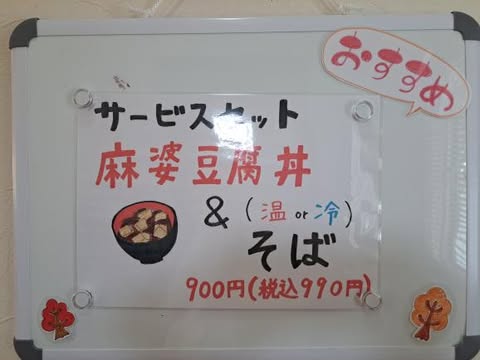 おすすめ
サービスセット
麻婆豆腐丼
&(温or冷)
そば
900円(税込990円)